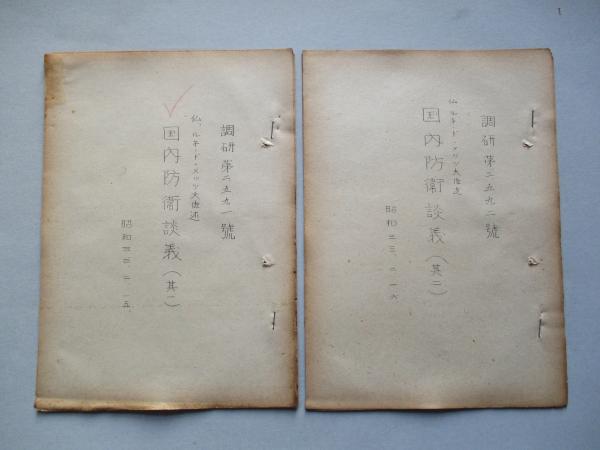 調研第二五九一號
仏、ルネ・ド・メッツ大佐述
国内防衛談義(其一)
昭和三三・二・一五
調研第二五九二號
仏 ルネ・ド・メッツ大佐述
国内防衛談義(其二)
昭和三三・二・一六